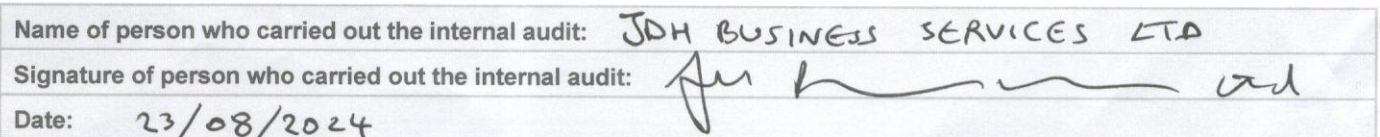 Name of person who carried out the internal audit: JDH BUSINESS SERVICES LTD
Signature of person who carried out the internal audit:
Date: 23/08/2024